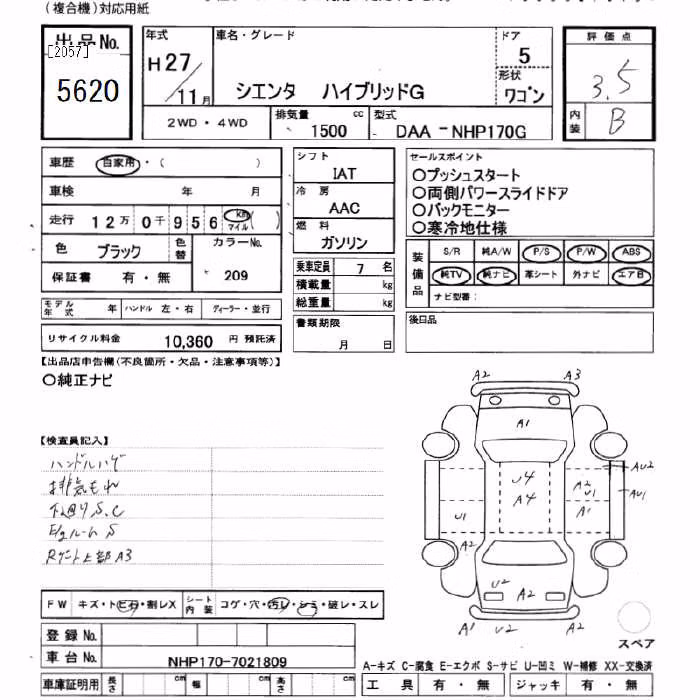 (複合機)対応用紙
出品No.
[2057]
5620
年式
H27/11月
車名・グレード
シエンタ ハイブリッドG
ドア
5
形状
ワゴン
2WD・4WD
排気量
1500 cc
型式
DAA-NHP170G
評価点
3.5
内装
B
車歴 自家用・( )
車検 年 月
走行 12万0千956 km マイル ( )
色 ブラック 色替 カラーNo.
209
保証書 有・無
モデル年式 年 ハンドル 左・右 ディーラー・並行
リサイクル料金 10,360 円 預託済
シフト
IAT
冷房
AAC
燃料
ガソリン
乗車定員 7 名
積載量 kg
総重量 kg
書類期限
月 日
セールスポイント
○プッシュスタート
○両側パワースライドドア
○バックモニター
○寒冷地仕様
装備品
S/R 純A/W P/S P/W ABS
純TV 純ナビ 革シート 外ナビ エアB
ナビ型番:
後日品
【出品店申告欄(不良箇所・欠品・注意事項等)】
○純正ナビ
【検査員記入】
ハンドルハゲ
排気もれ
下廻りS.C
E/gルームS
Rゲート上部A3
A2 A3
A1
U4
A4
A2
U1
A1
AU2
AU1
U1
A2
A2
U2
A2
A1 U2 A2
スペア
FW キズ・トビ石・割レX シート内装 コゲ・穴・汚レ・シミ・破レ・スレ
登録No.
車台No. NHP170-7021809
A-キズ C-腐食 E-エクボ S-サビ U-凹ミ W-補修 XX-交換済
車庫証明用 長さ cm 幅 cm 高さ cm
工具 有・無 ジャッキ 有・無